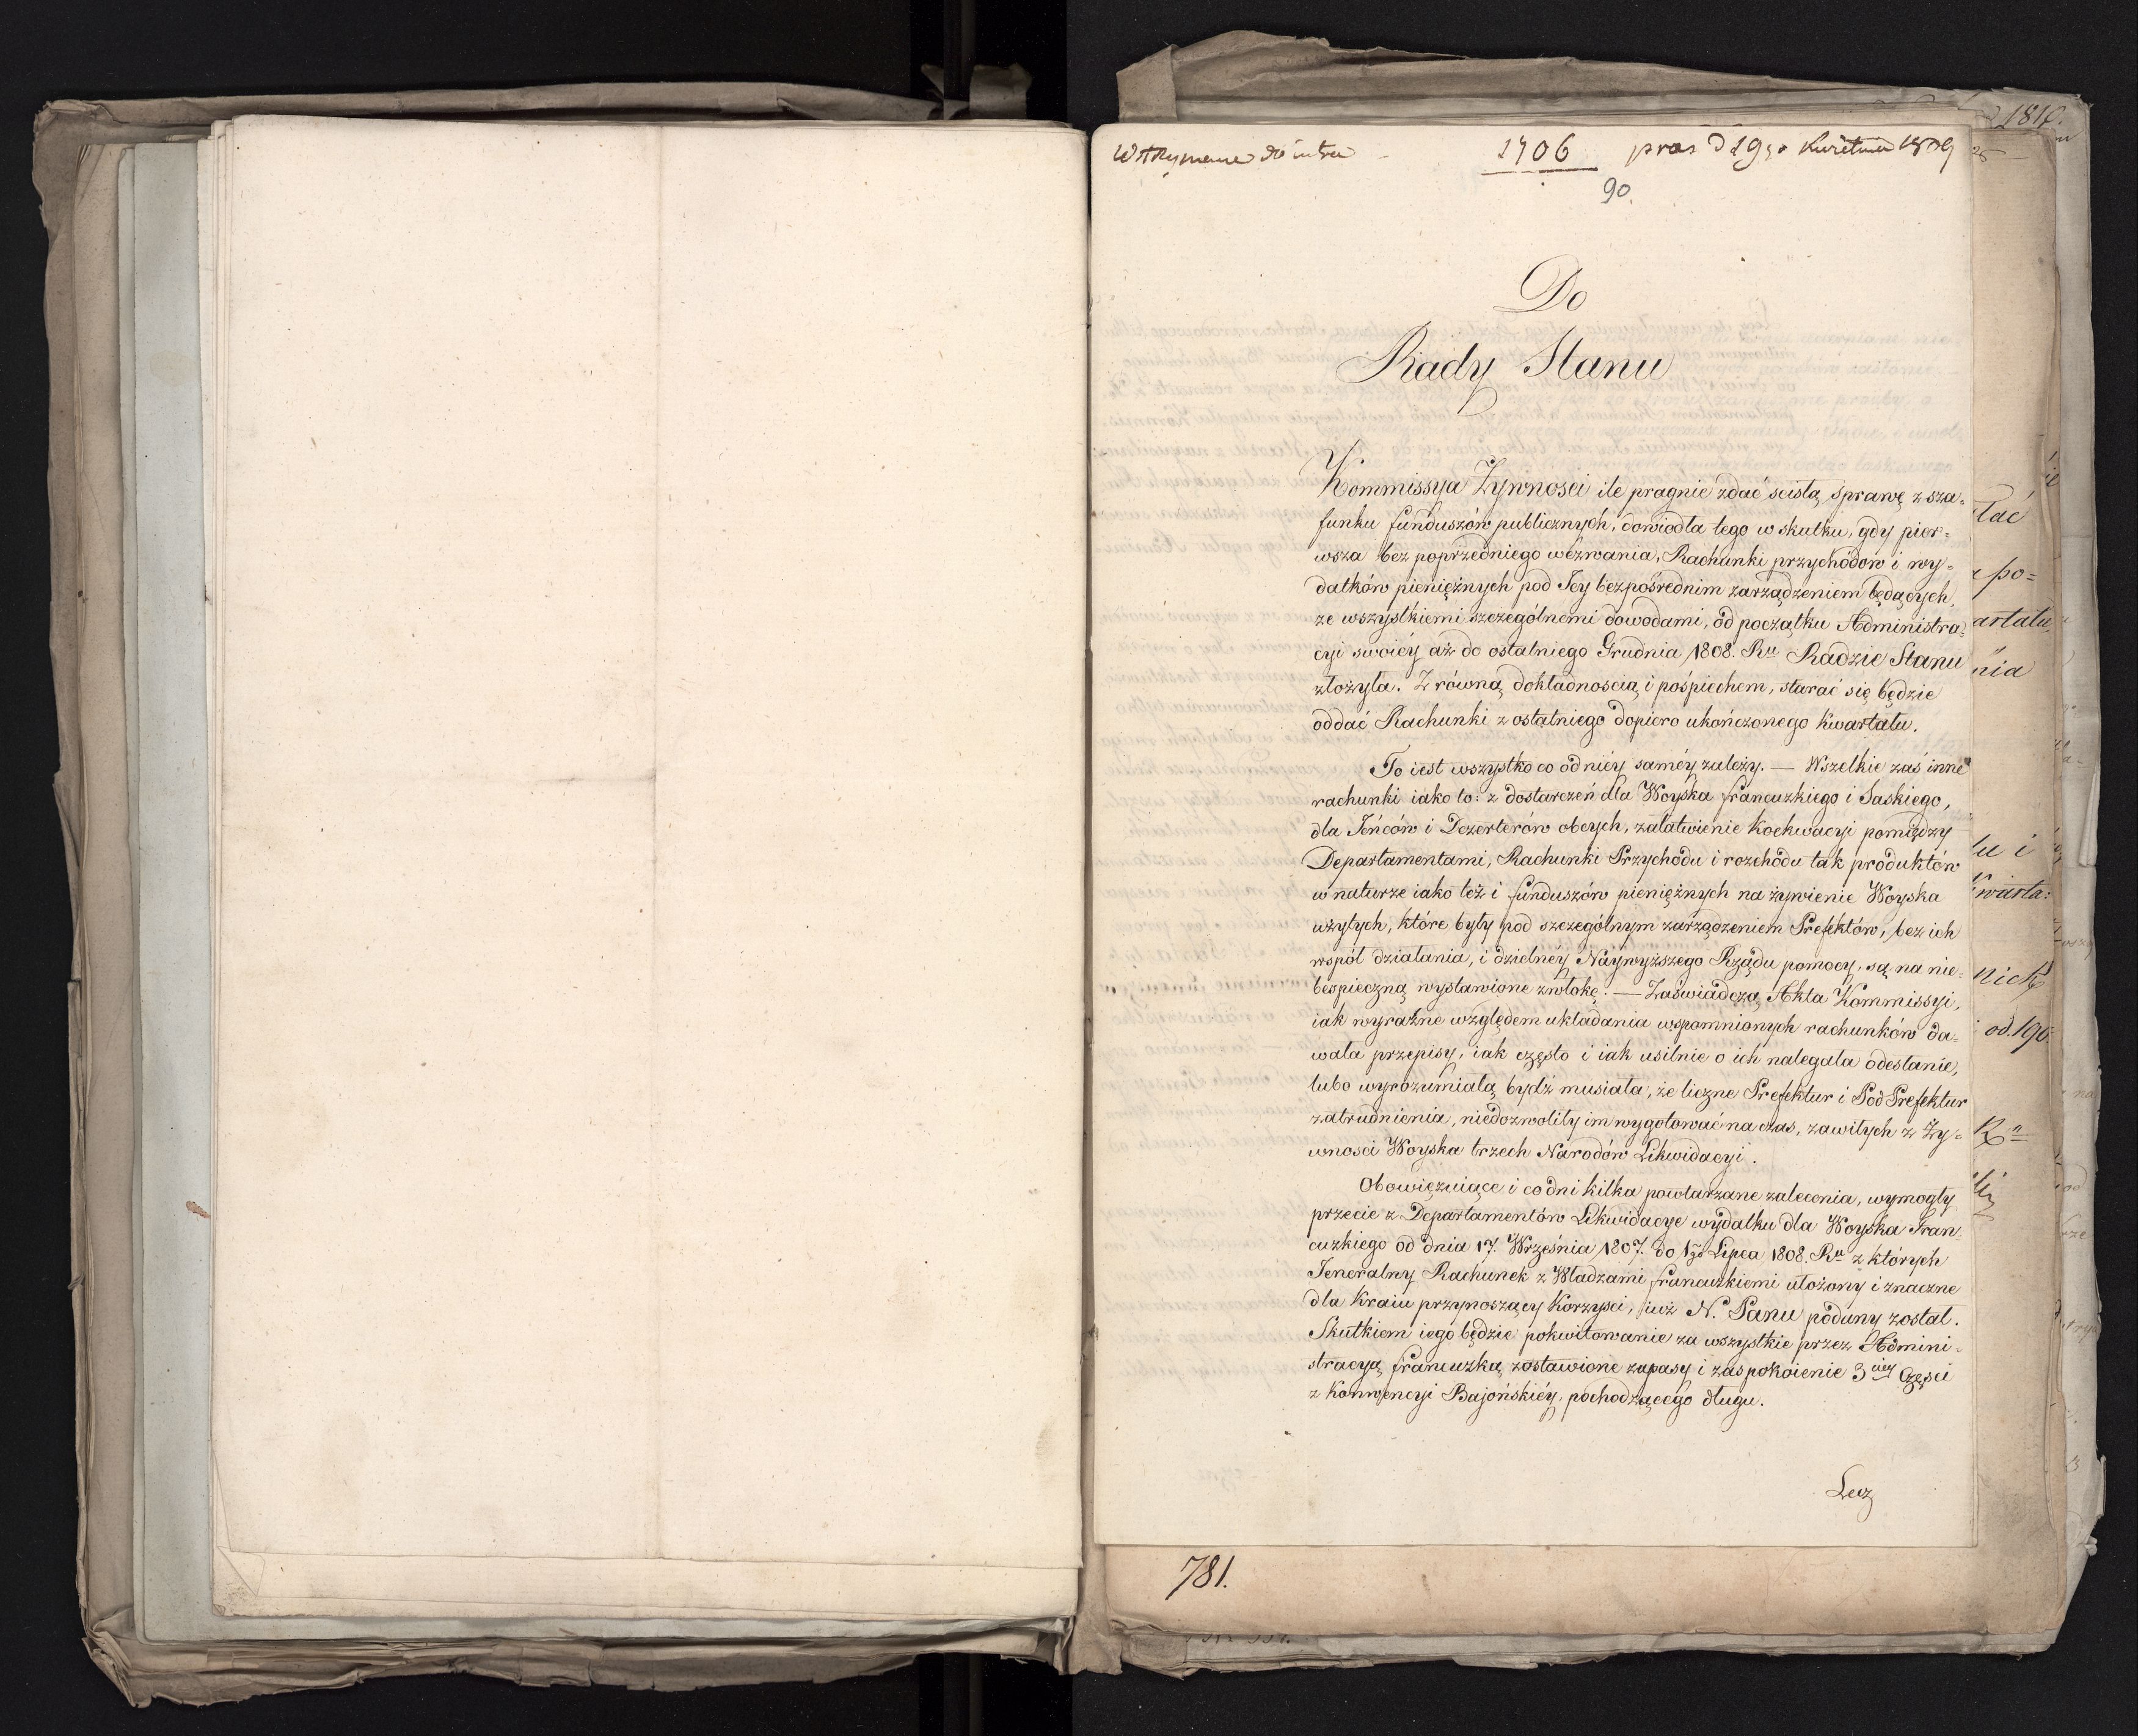 Wstrzymane do jutra — 1706 pras d 19go Kwietnia 1809
90.
Do
Rady Stanu
Kommissya Żywnosci ile pragnie zdać scisłą sprawę z sza=
funku funduszów publicznych, dowiodła tego w skutku, gdy pier=
wsza bez poprzedniego wezwania, Rachunki przychodów i wy=
datków pieniężnych pod Jey bezpośrednim zarządzeniem będących,
ze wszystkiemi szczególnemi dowodami, od początku Administra=
cyi swoiéy aż do ostatniego Grudnia 1808. Ru Radzie Stanu
złożyła. Z równą dokładnoscią i pośpiechem, starać się będzie
oddać Rachunki z ostatniego dopiero ukończonego kwartału.
To iest wszystko co od niéy saméy zależy. — Wszelkie zaś inne
rachunki iako to: z dostarczeń dla Woyska francuzkiego i Saskiego,
dla Jeńców i Dezerterów obcych, załatwienie Koekwacyi pomiędzy
Departamentami, Rachunki Przychodu i rozchodu tak produktów
w naturze iako też i funduszów pieniężnych na żywienie Woyska
użytych, które były pod szczególnym zarządzeniem Prefektów, bez ich
wspól działania, i dzielnéy Náywyższego Rządu pomocy, są na nie=
bespieczną wystawione zwłokę. — Zaświadczą Akta Kommissyi,
iak wyraźne względem układania wspomnionych rachunków da=
wała przepisy, iak często i iak usilnie o ich nalegała odesłanie,
lubo wyrozumiałą bydź musiała, że liczne Prefektur i Pod Prefektur
zatrudnienia, niedozwoliły im wygotować na czas, zawiłych z Ży=
wnosci Woyska trzech Narodów Likwidacyi.
Obowięzuiące i co dni kilka powtarzane zalecenia, wymogły
przecie z Departamentów Likwidacye wydatku dla Woyska Fran=
cuzkiego od dnia 17. Września 1807. do 1go Lipca 1808. Ru z których
Jeneralny Rachunek z Władzami francuzkiemi ułożony i znaczne
dla Kraiu przynoszący Korzysci, iuż N. Panu podany został.
Skutkiem iego będzie pokwitowanie za wszystkie przez Admini=
stracyą francuzką zostawione zapasy i zaspokoienie 3ciey Częsci
z Konwencyi Bajońskiéy, pochodzącégo długu.
Lecz
781.